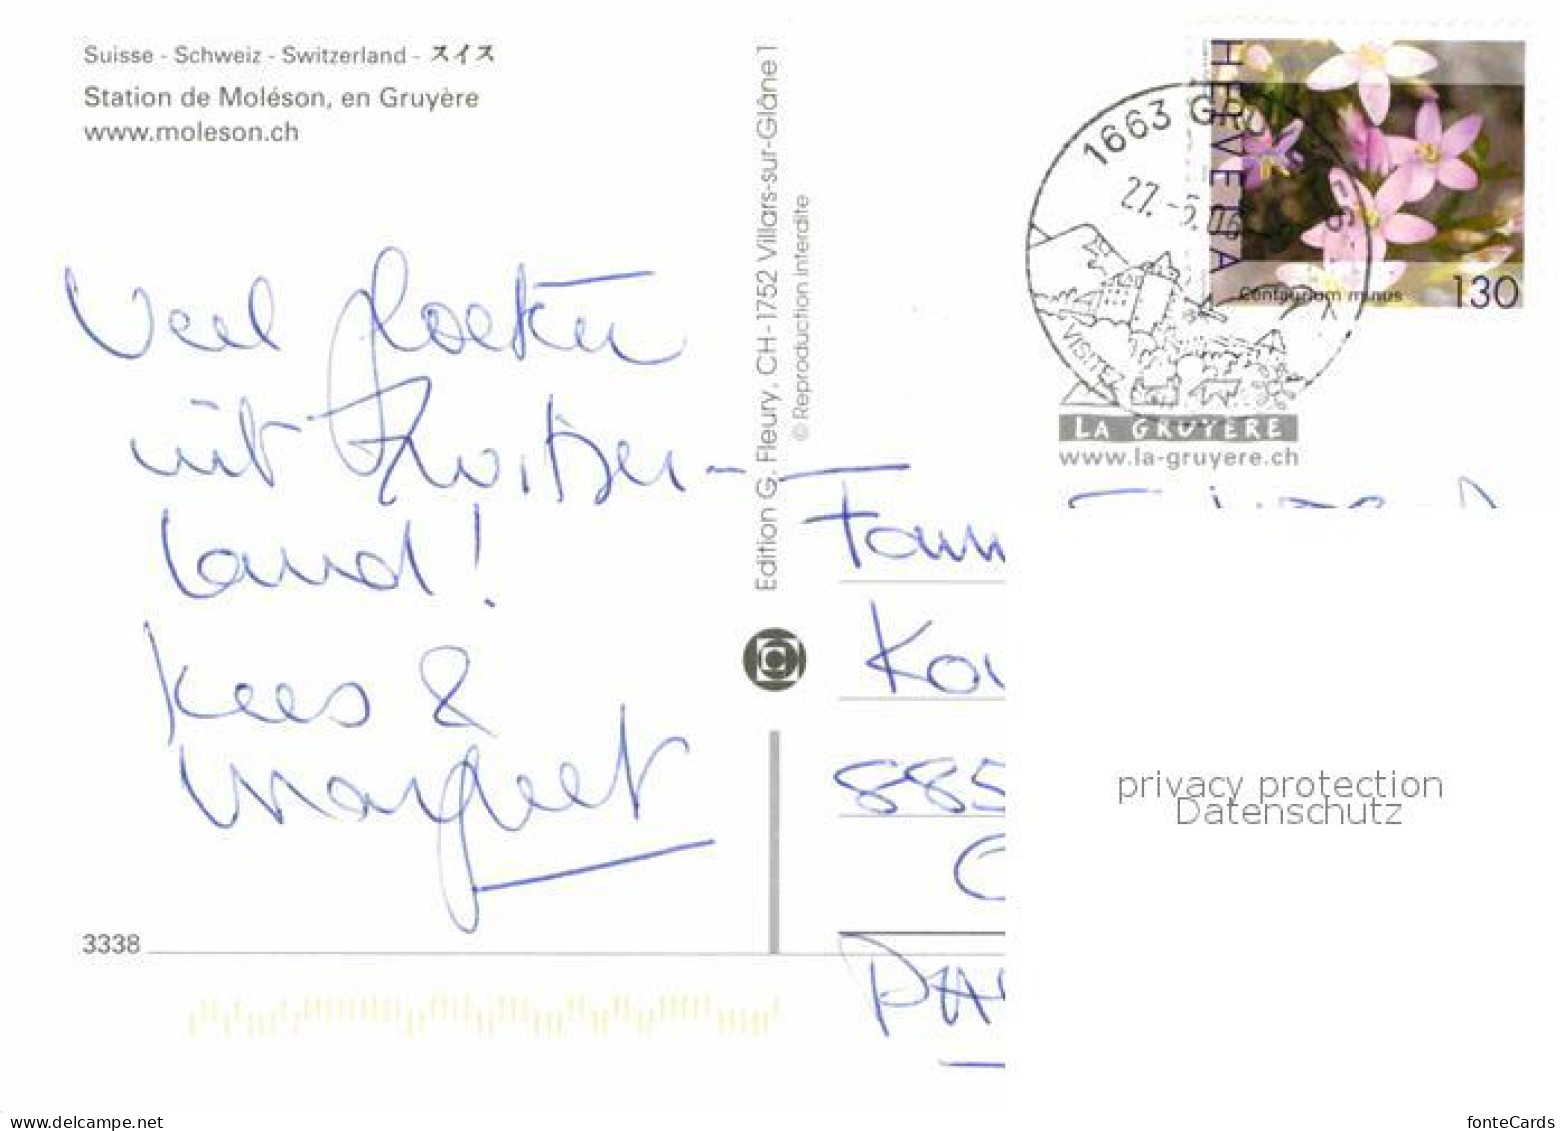 Suisse - Schweiz - Switzerland - スイス
Station de Moléson, en Gruyère
www.moleson.ch
Veel groeten
uit Zwitser-
land!
Kees &
Margreet
3338
Edition G. Fleury, CH - 1752 Villars-sur-Glâne 1
© Reproduction interdite
1663 GRU
27. -5. 06
VISITEZ
LA GRUYERE
www.la-gruyere.ch
HELVETIA
Centaurium minus
130
Fam
885
privacy protection
Datenschutz
www.delcampe.net
fonteCards